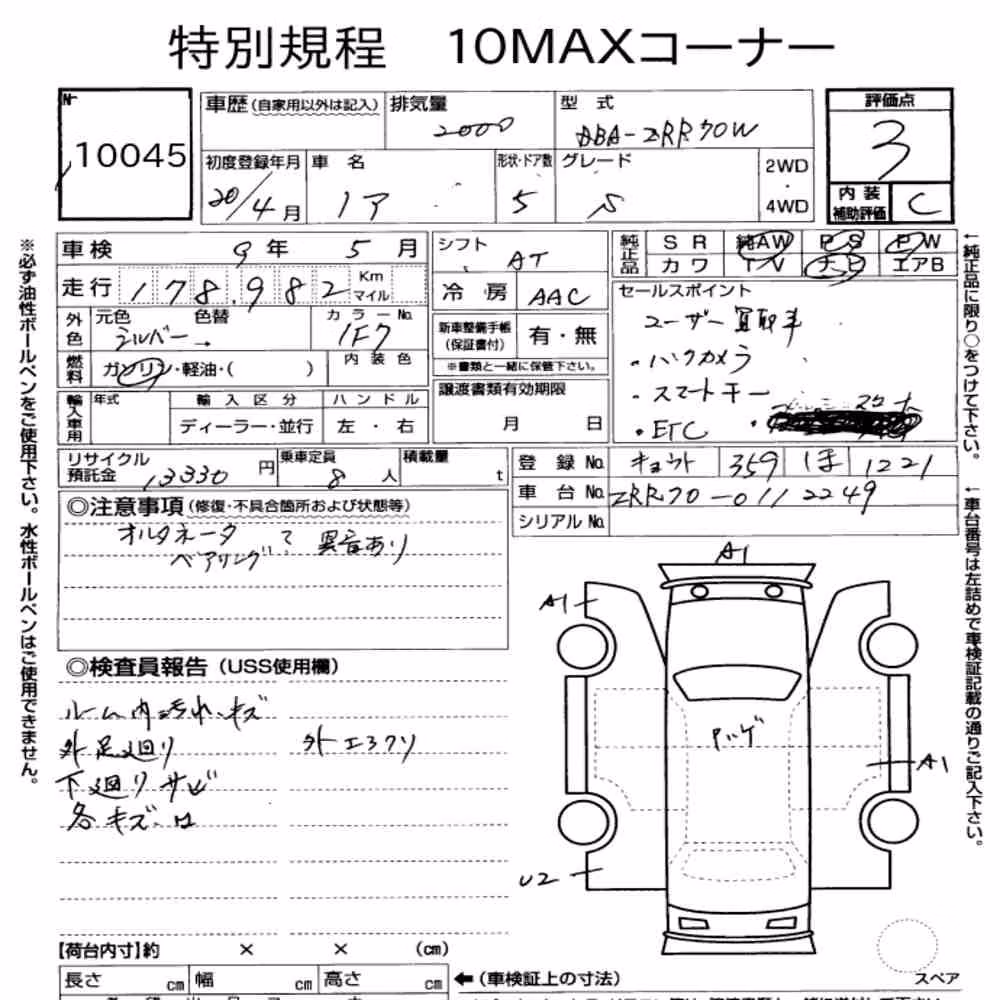 特別規程 10MAXコーナー
№ 10045
車歴(自家用以外は記入)
排気量 2000
型式 DBA-ZRR70W
評価点 3
内装補助評価 C
初度登録年月 20/4月
車名 ノア
形状・ドア数 5
グレード S
2WD・4WD
車検 9年 5月
走行 178,982 Km マイル
外色 元色 シルバー→ 色替
カラーNo. 1F7
燃料 ガソリン・軽油・( )
内装色
輸入車用 年式 輸入区分 ハンドル
ディーラー・並行 左・右
リサイクル預託金 13330円
乗車定員 8人
積載量 t
シフト AT
冷房 AAC
新車整備手帳(保証書付) 有・無
※書類と一緒に保管下さい。
譲渡書類有効期限
月 日
純正品 SR 純AW PS PW
カワ TV ナビ エアB
セールスポイント
ユーザー買取車
・バックカメラ
・スマートキー
・ETC
登録No. キョウト 359 ほ 1221
車台No. ZRR70-0112249
シリアルNo.
◎注意事項(修復・不具合箇所および状態等)
オルタネータ
ベアリング ? 異音あり
◎検査員報告(USS使用欄)
ルーム内汚れ、キズ
外足廻り 外エクリ
下廻りサビ
各キズ・凹
A1
A1
Pハゲ
A1
U2
スペア
【荷台内寸】約 × × (cm)
長さ cm 幅 cm 高さ cm
←(車検証上の寸法)
※必ず油性ボールペンをご使用下さい。水性ボールペンはご使用できません。
←純正品に限り○をつけて下さい。
←車台番号は左詰めで車検証記載の通りご記入下さい。